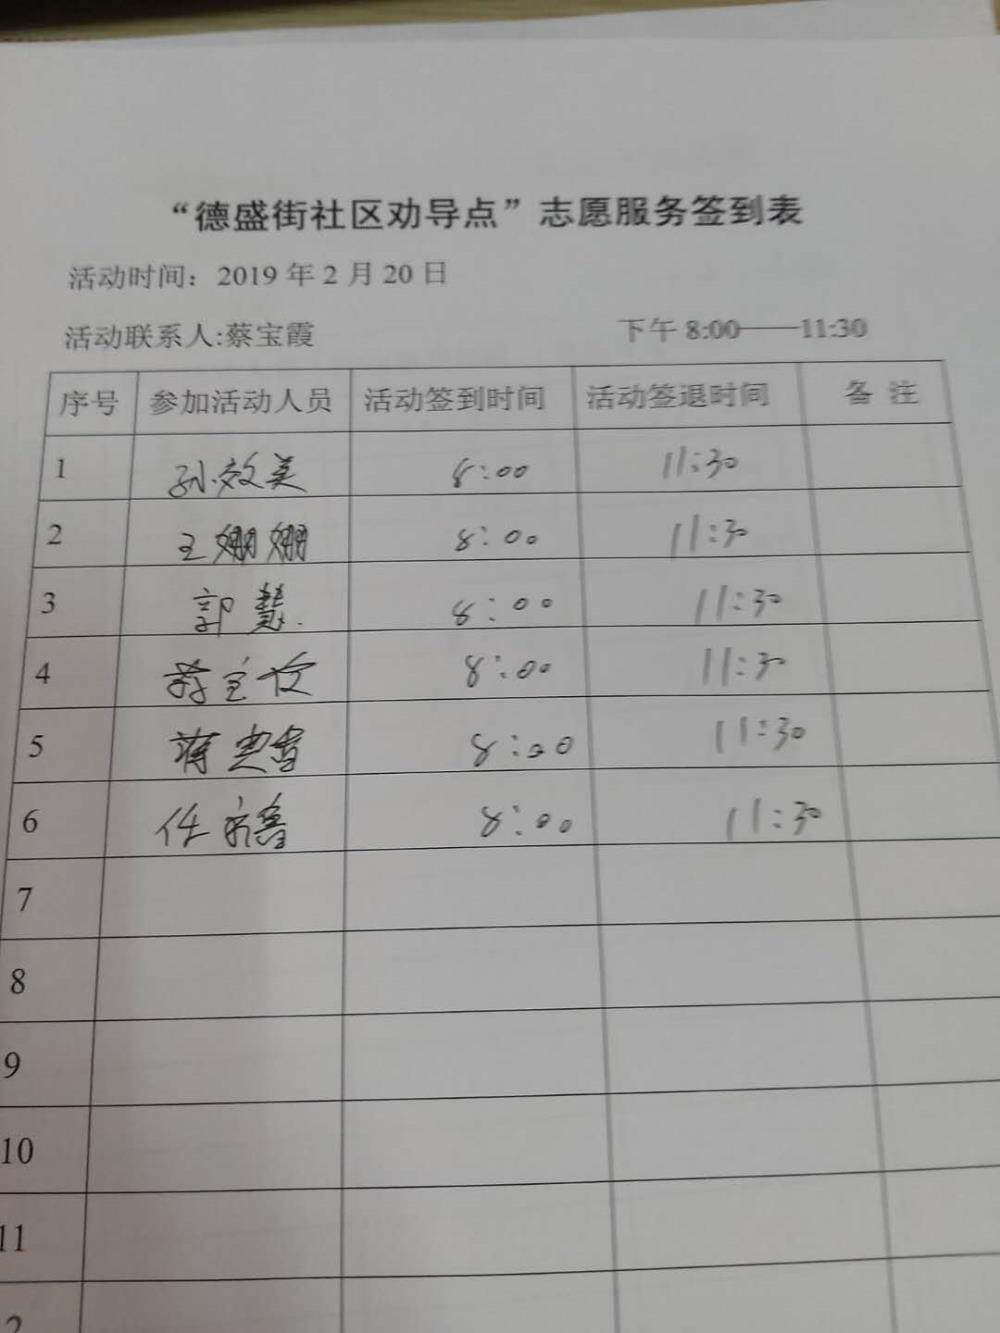 “德盛街社区劝导点”志愿服务签到表
活动时间：2019 年 2 月 20 日
活动联系人:蔡宝霞 下午 8:00——11:30
序号 参加活动人员 活动签到时间 活动签退时间 备 注
1 孙效美 8:00 11:30
2 王姗姗 8:00 11:30
3 郭慧 8:00 11:30
4 8:00 11:30
5 蒋 8:00 11:30
6 任 8:00 11:30
7
8
9
10
11